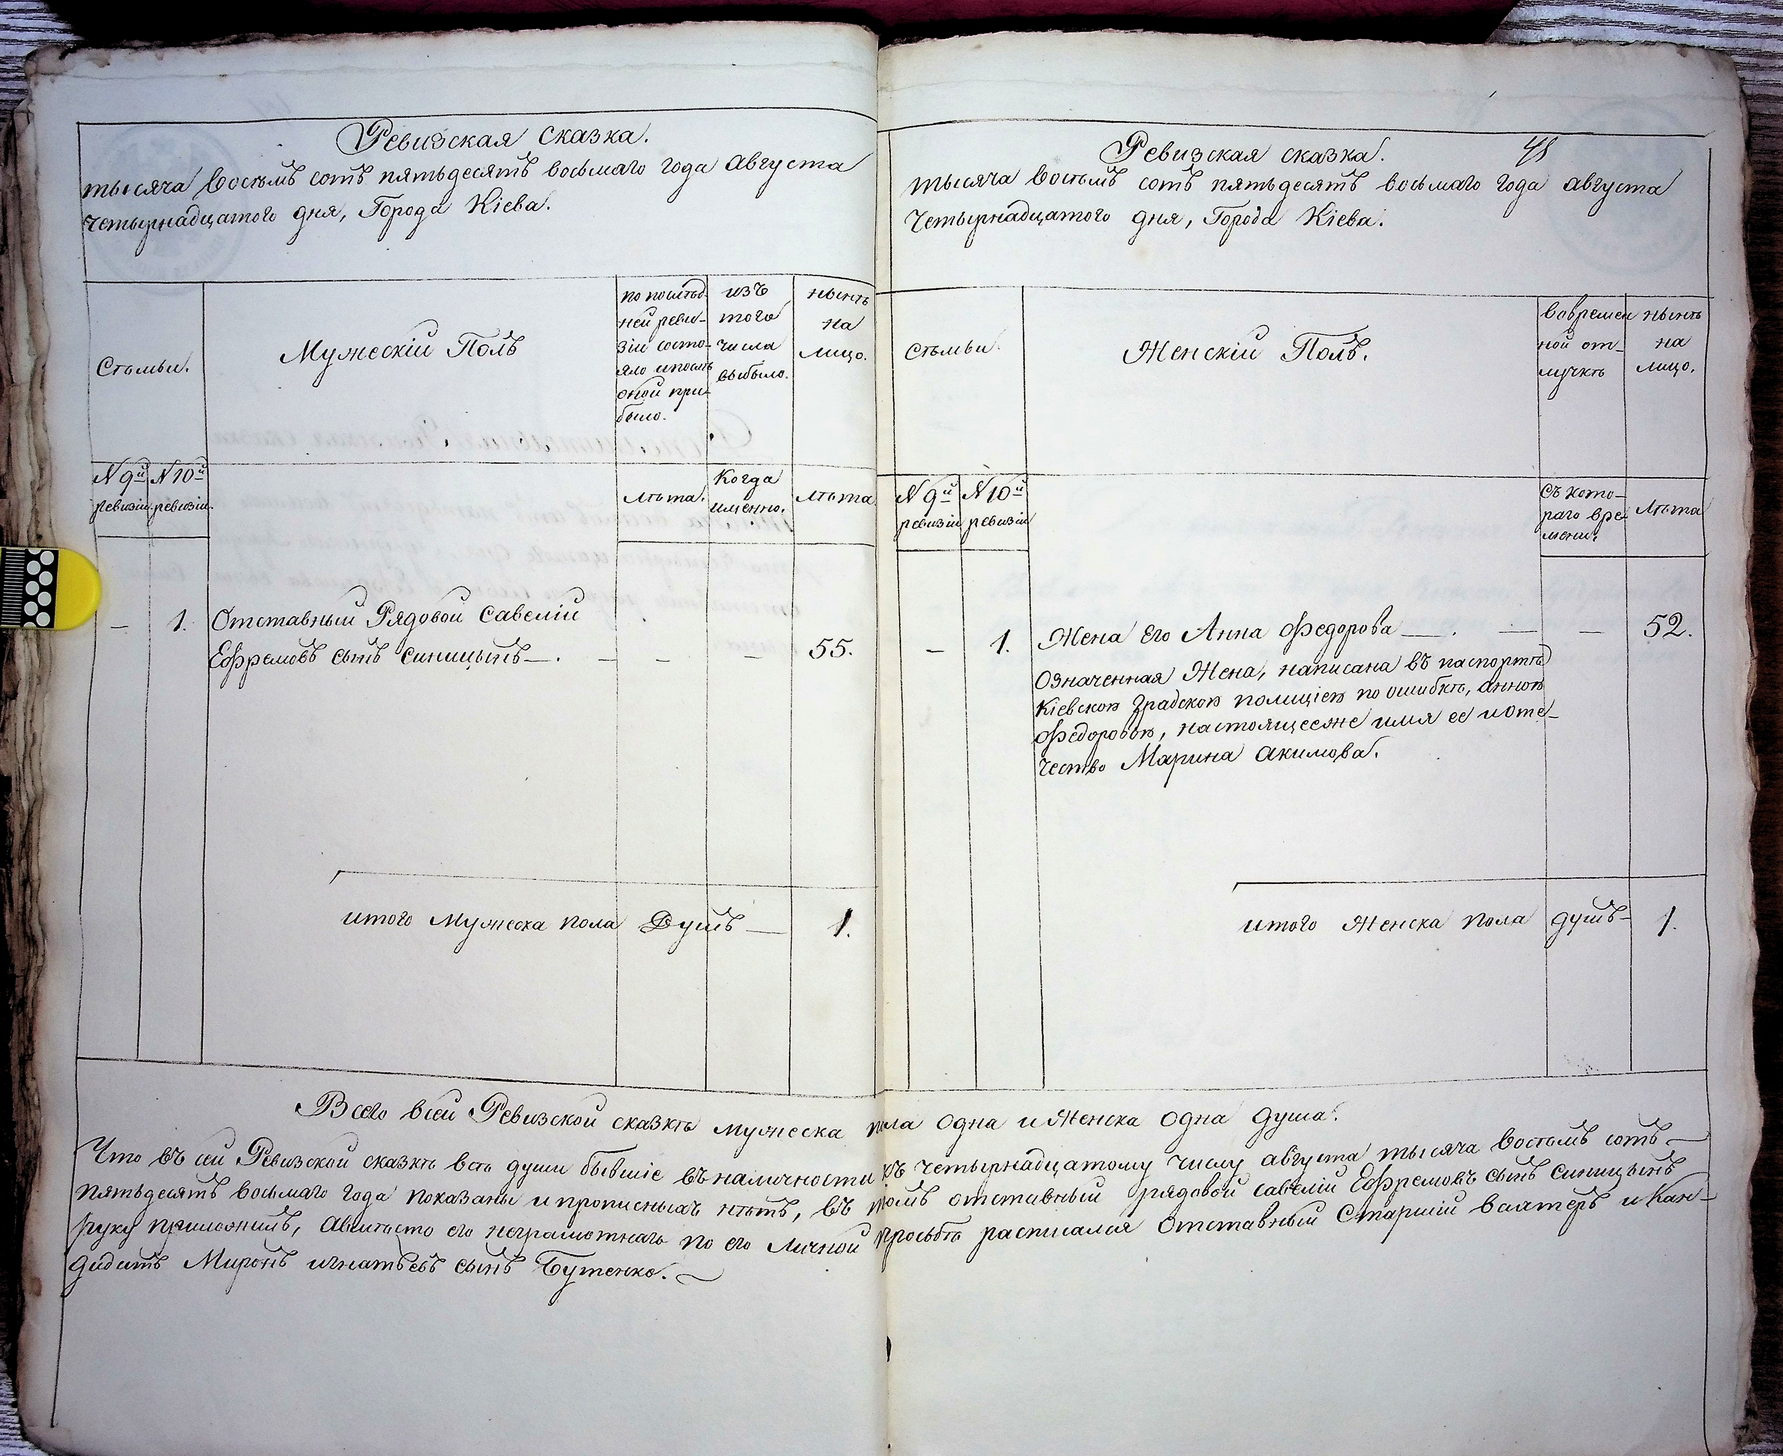 Ревизская сказка.
тысяча восѣмъ сотъ пятьдесятъ восьмаго года августа
четырнадцатого дня, Города Кіева.
Сѣмьи.
Мужескій Полъ
по послѣд-
ней реви-
зіи состо-
яло и послѣ
оной при-
было.
изъ
того
числа
выбыло.
нынѣ
на
лицо.
№ 9й ревизіи
№ 10й ревизіи.
лѣта.
Когда
именно.
лѣта
— 1. Отставный Рядовой Савелій
Ефремовъ сынъ Синицынъ — . — — — 55.
итого Мужеска пола Душъ — 1.
Ревизская сказка.
48
тысяча восѣмъ сотъ пятьдесятъ восьмаго года августа
четырнадцатого дня, Города Кіева.
Сѣмьи.
Женскій Полъ.
вовремен
ной от-
лучкѣ
нынѣ
на
лицо.
№ 9й ревизіи
№ 10й ревизіи
съ кото-
раго вре-
мени.
лѣта
— 1. Жена его Анна Федорова — . — — 52.
Означенная Жена, написана въ паспортѣ
Кіевскою градскою полиціею по ошибкѣ, анною
Федоровою, настоящееже имя ее и оте-
чество Марина Акимова.
итого Женска пола душъ — 1.
Всего всей Ревизской сказкѣ мужеска пола одна и Женска одна душа.
Что въ сей Ревизской сказкѣ всѣ души бывшіе въ наличности къ четырнадцатому числу августа тысяча восѣмъ сотъ —
пятьдесятъ восьмаго года показаны и прописныхъ нѣтъ, въ томъ отставный рядовой Савелій Ефремовъ сынъ Синицынъ
руку приложилъ, Авмѣсто его неграмотнаго по его Личной просьбѣ расписался Отставный Старшій вахтеръ и Кан-
дидатъ Миронъ игнатьевъ сынъ Бутенко. —